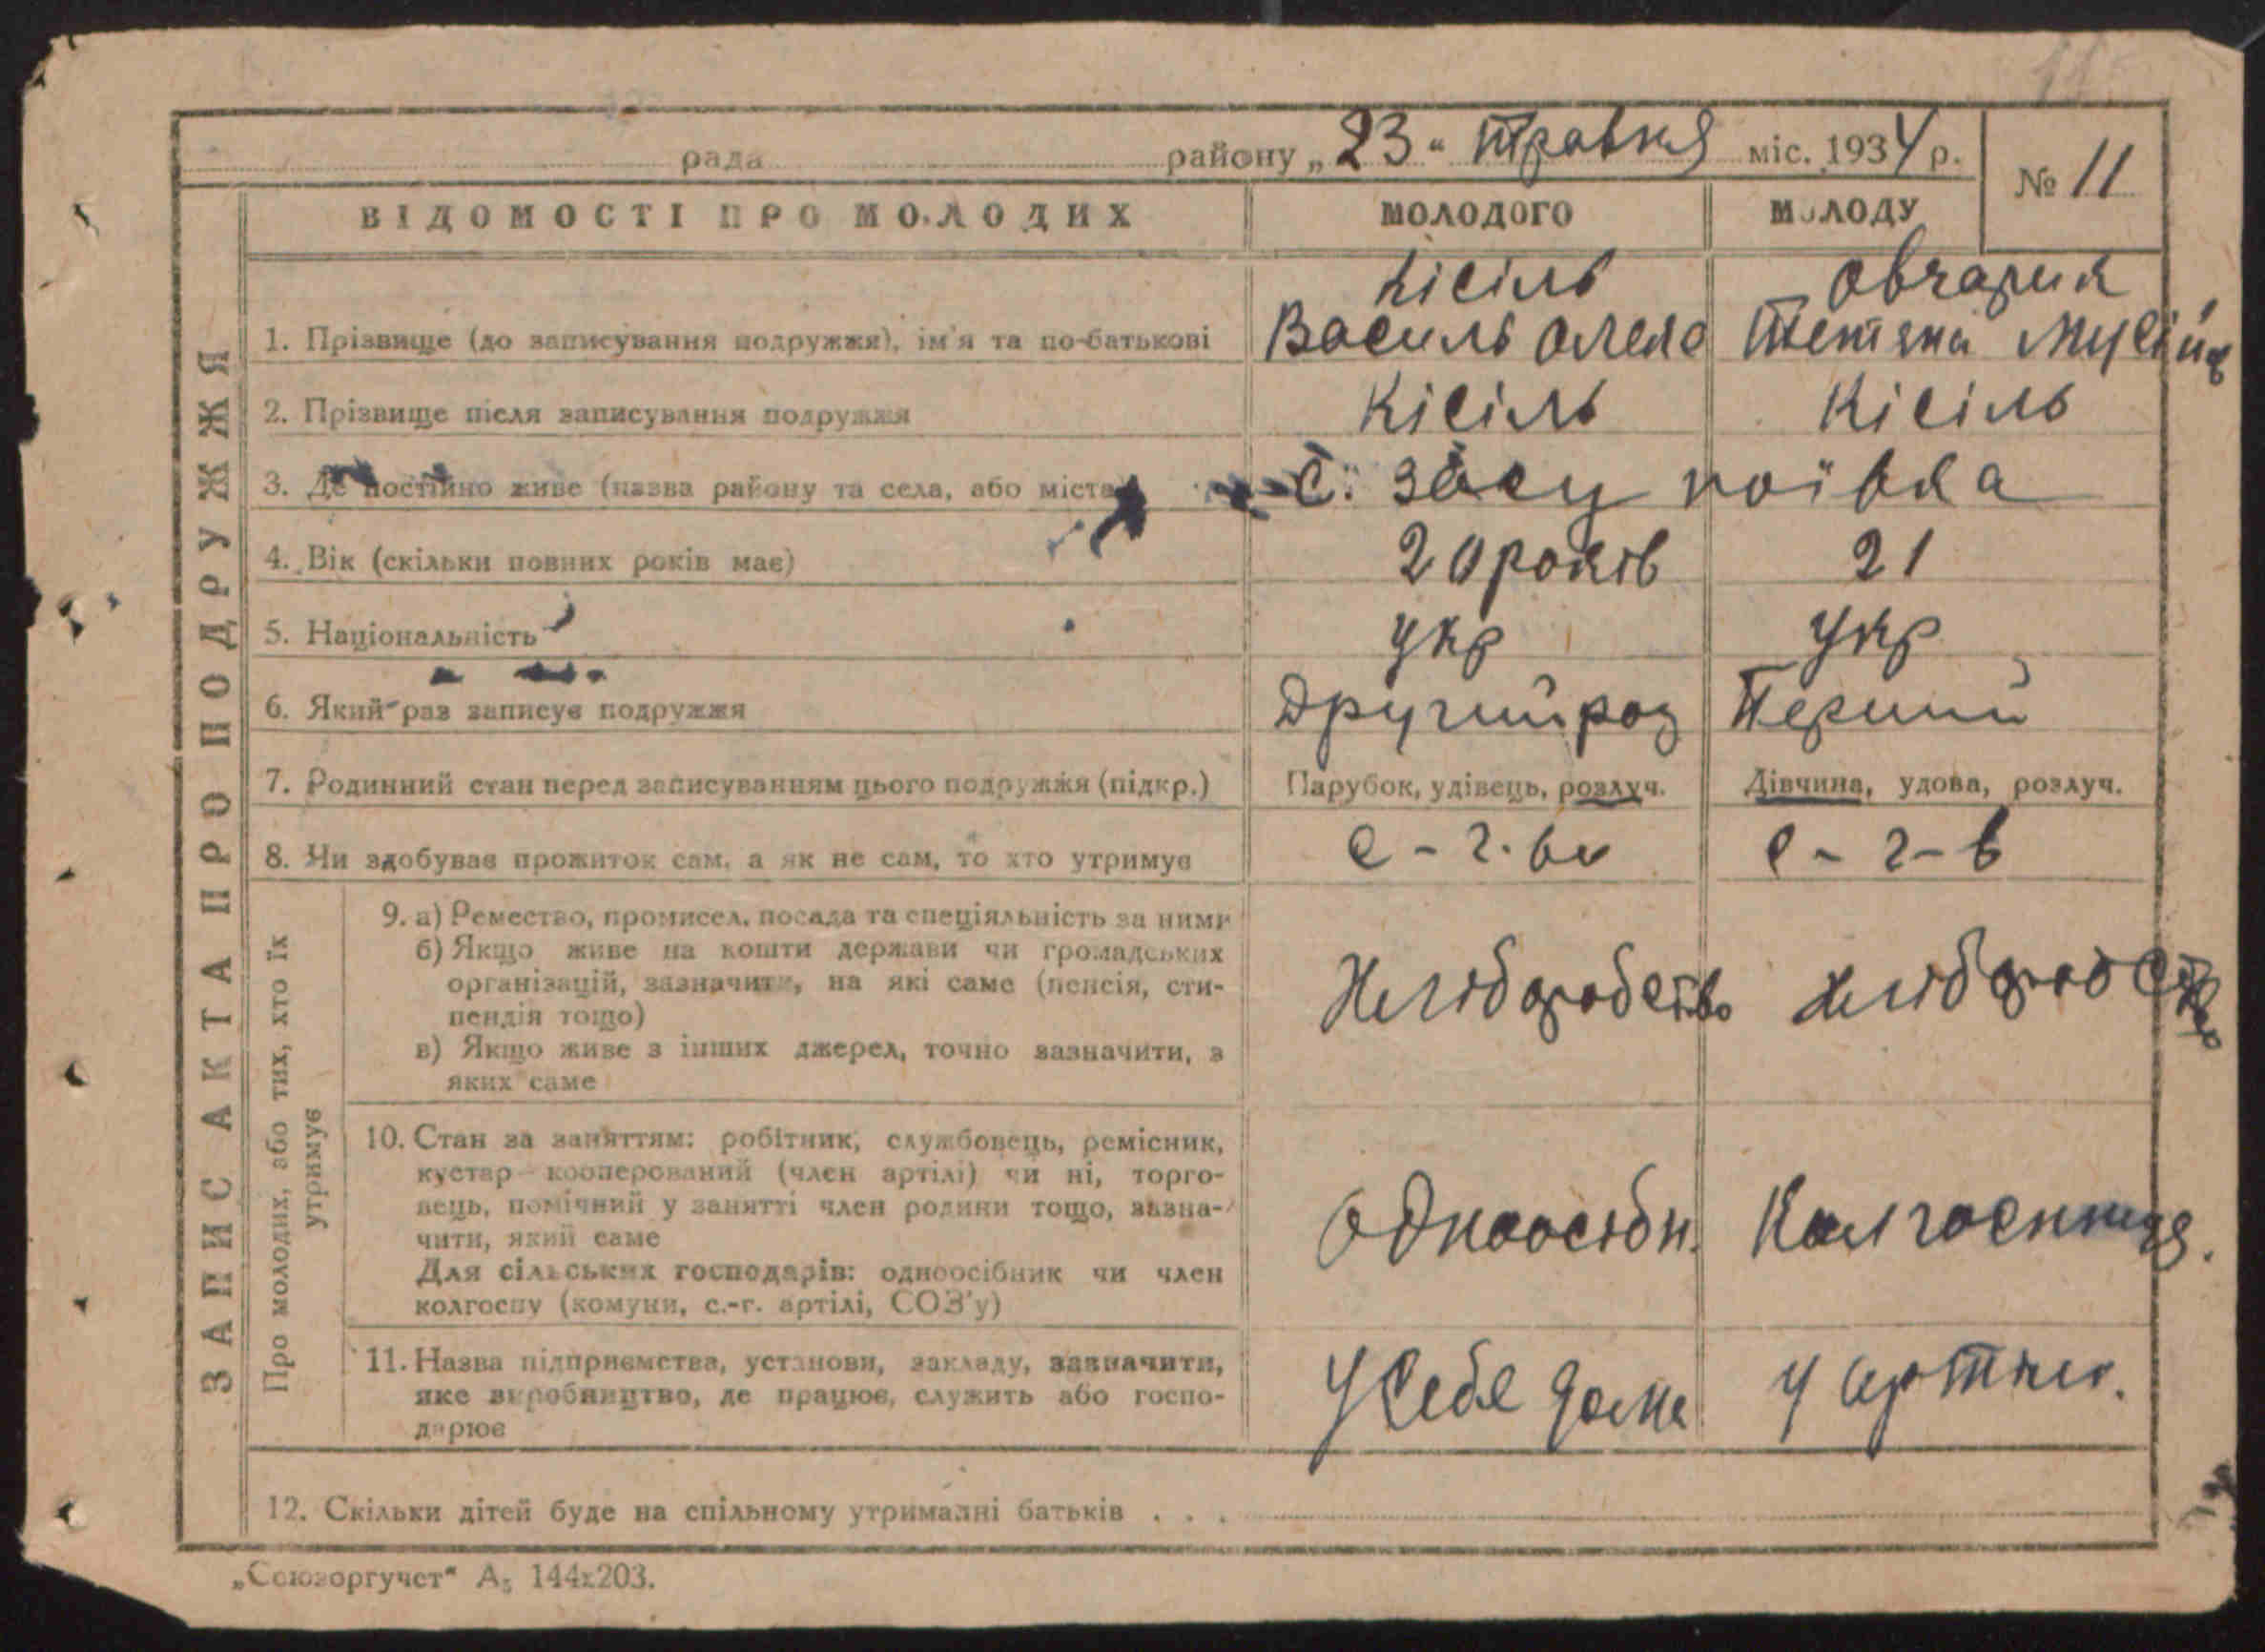 рада району „23“ травня міс. 1934 р.
№ 11
ВІДОМОСТІ ПРО МОЛОДИХ
МОЛОДОГО
МОЛОДУ
ЗАПИС АКТА ПРО ПОДРУЖЖЯ
Кісіль
Овчарик
1. Прізвище (до записування подружжя), ім'я та по-батькові
Василь Олекс
Тетяна Мусіїв
2. Прізвище після записування подружжя
Кісіль
Кісіль
3. Де постійно живе (назва району та села, або міста)
с.
4. Вік (скільки повних років має)
20 років
21
5. Національність
укр
укр
6. Який раз записує подружжя
Другий раз
Перший
7. Родинний стан перед записуванням цього подружжя (підкр.)
Парубок, удівець, розлуч.
Дівчина, удова, розлуч.
8. Чи здобуває прожиток сам, а як не сам, то хто утримує
с-г.
с-г-в
Про молодих, або тих, хто їх
утримує
9. а) Ремество, промисел, посада та спеціяльність за ними
б) Якщо живе на кошти держави чи громадських
організацій, зазначити, на які саме (пенсія, сти-
пендія тощо)
в) Якщо живе з інших джерел, точно зазначити, з
яких саме
Хліборобство
хліборобство
10. Стан за заняттям: робітник, службовець, ремісник,
кустар — кооперований (член артілі) чи ні, торго-
вець, помічний у занятті член родини тощо, зазна-
чити, який саме
Для сільських господарів: одноосібник чи член
колгоспу (комуни, с.-г. артілі, СОЗ'у)
Одноосібн.
Колгоспниця.
11. Назва підприємства, установи, закладу, зазначити,
яке виробництво, де працює, служить або госпо-
дарює
У себе дома
У артілі.
12. Скільки дітей буде на спільному утриманні батьків . . .
„Союзоргучет“ А₅ 144х203.